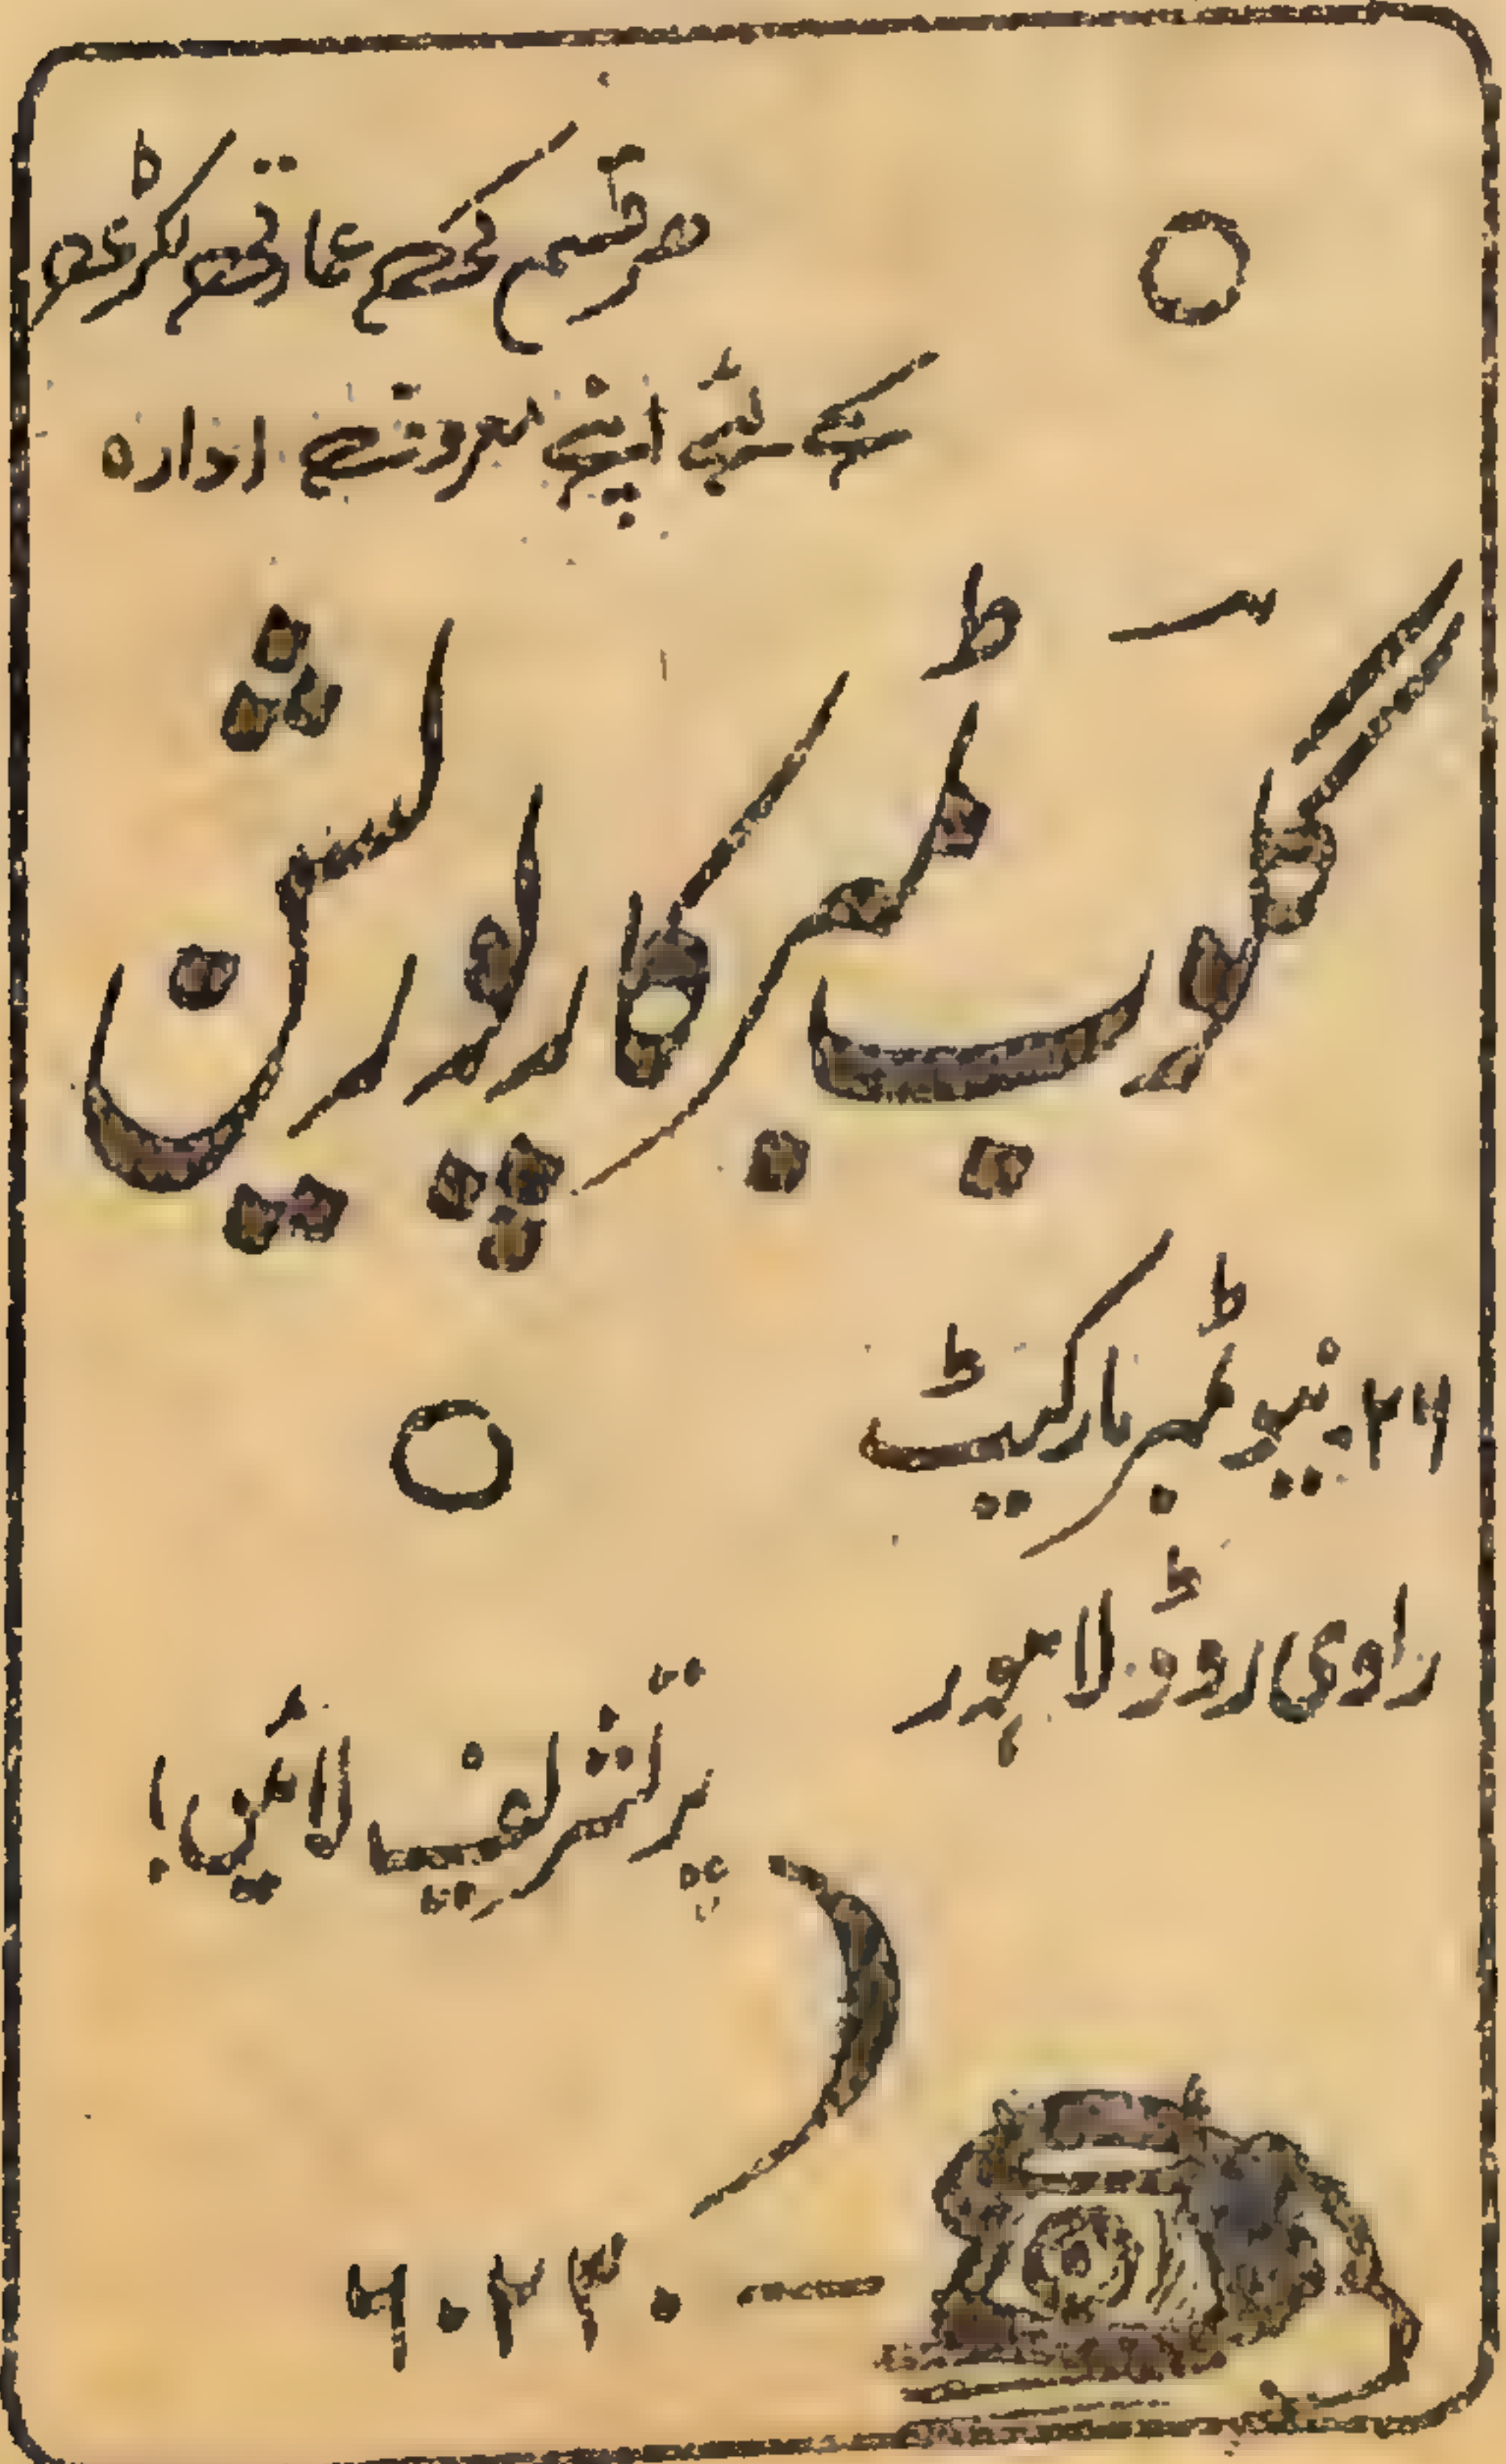 ھر قسم کے عمارتی لکڑی
کے لئے اپنے معروف ادارہ
گلوب ٹمبر کارپوریشن
۲۶۔ نیو ٹمبر مارکیٹ
راوی روڈ لاہور
پر تشریف لائیں!
۶۰۲۳۰